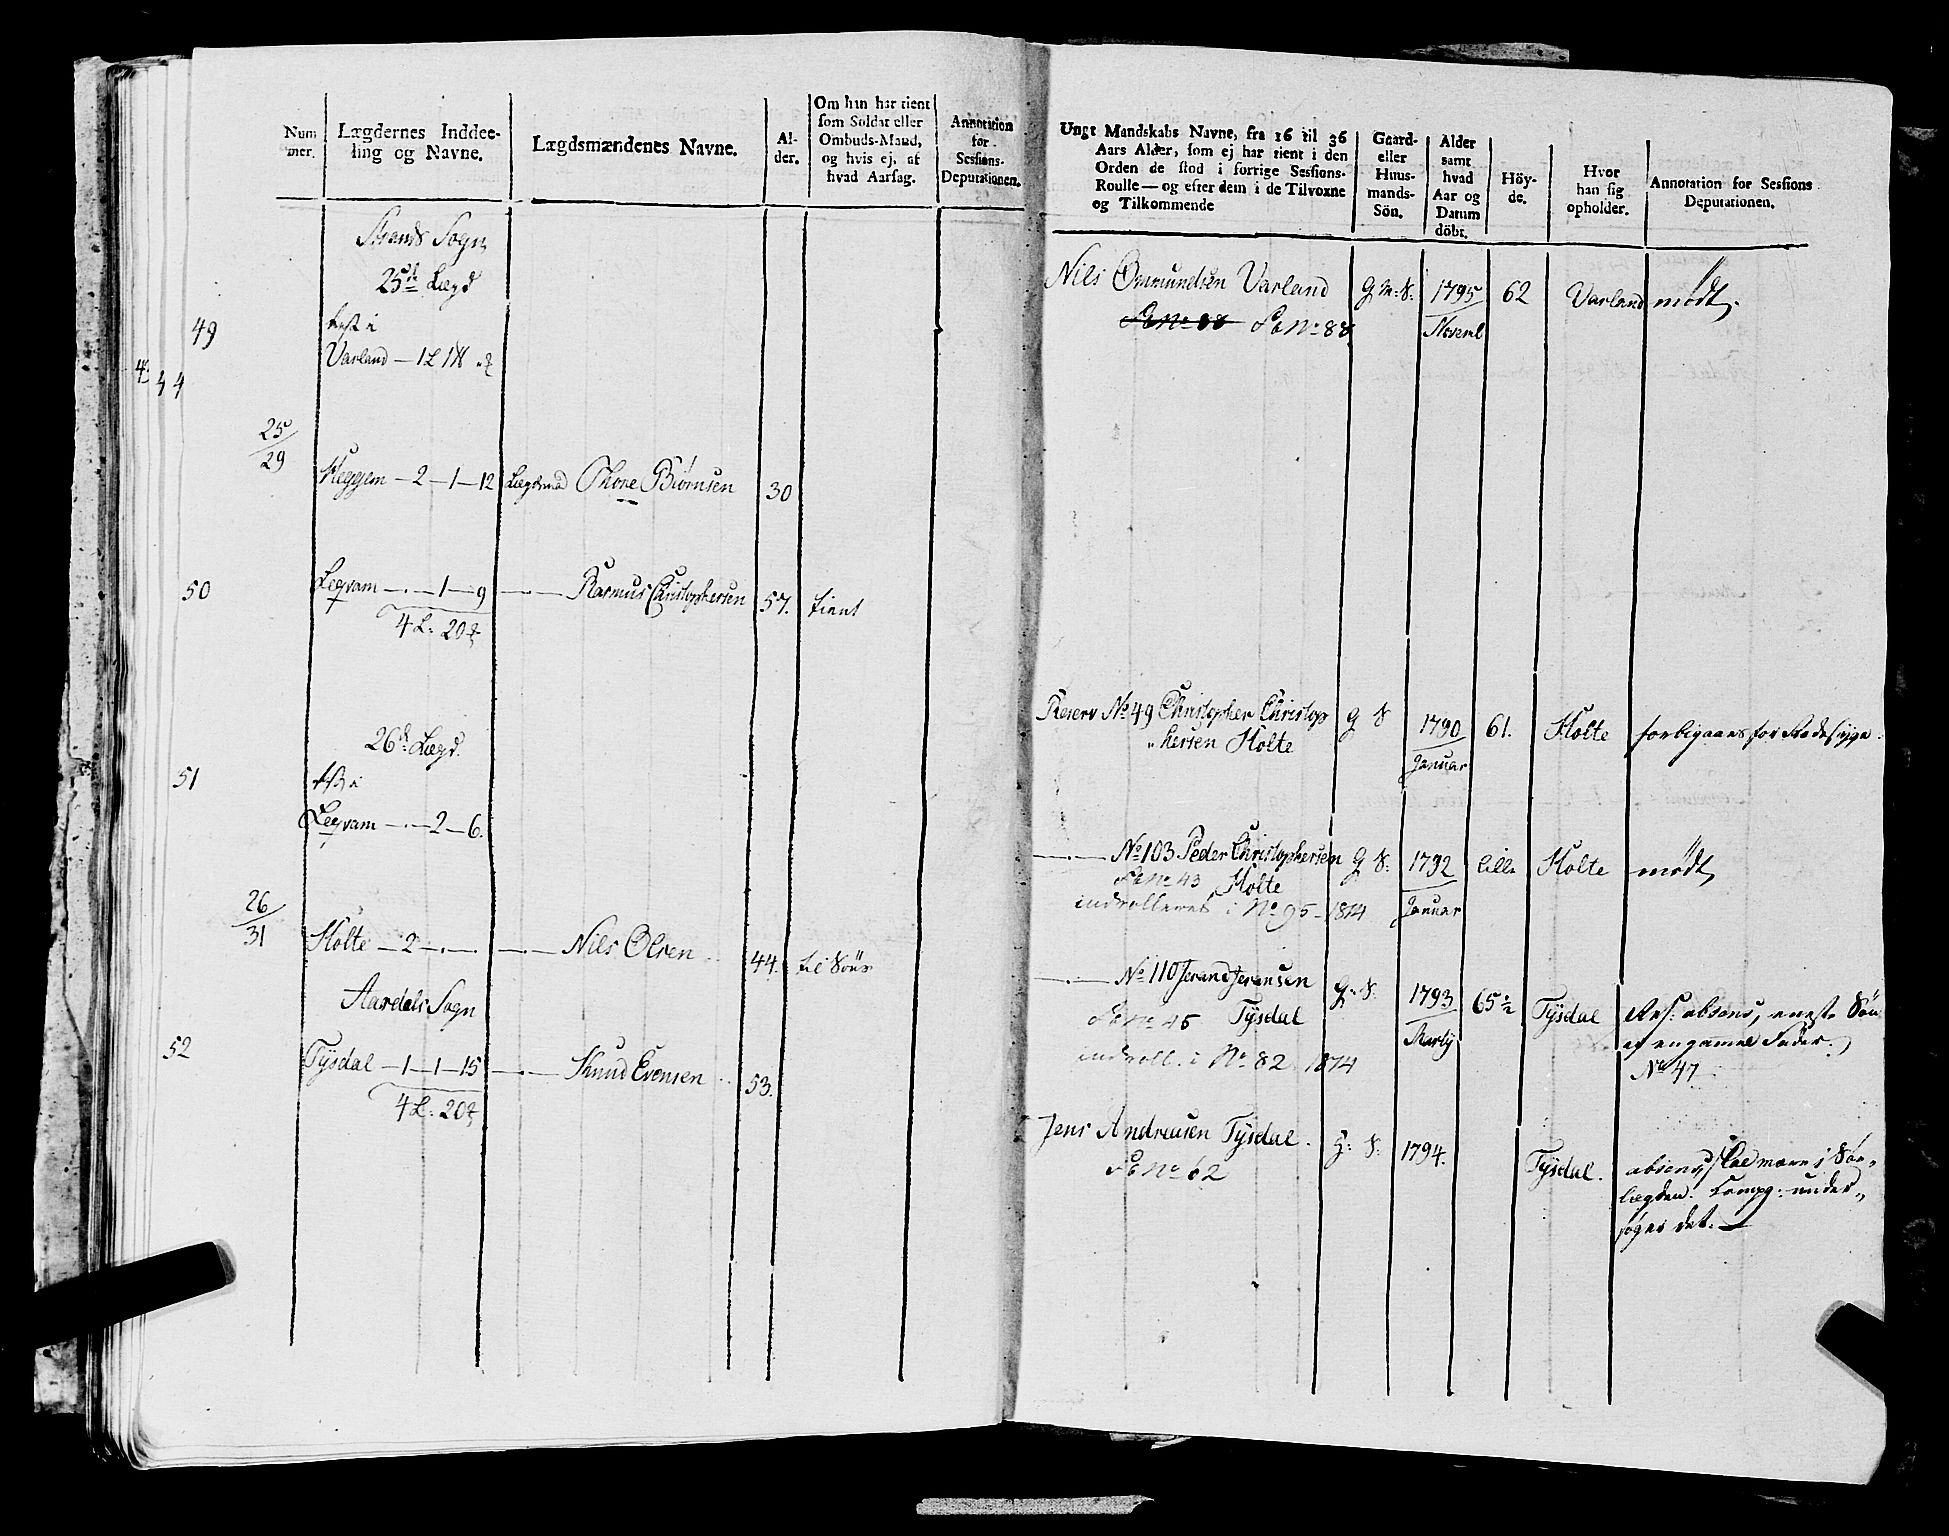 Num
mer.
Lægdernes Inddee-
ling og Navne.
Lægdsmændenes Navne.
Al-
der.
Om han har tient
som Soldat eller
Ombuds-Mand,
og hvis ej, af
hvad Aarsag.
Annotation
for
Sessions-
Deputationen.
Strands Sogn
25de Lægd
49
Rest i
Varland — 1 L 1
44
25/29
Heggem — 2 — 1 — 12 Lægdsmd Thore Biørnsen 30
50
Leqvam — . — 1 — 9 — . — Rasmus Christophersen 57. tient
4 L: 20
26de Lægd.
51
Leqvam — . — 2 — 6.
26/31
Holte — 2 — . — — . — Nils Olsen 44. til Søes
Aardals Sogn
52
Tysdal — 1 — 1 — 15 — . — Knud Evensen 53.
4 L: 20
Ungt Mandskabs Navne, fra 16 til 36
Aars Alder, som ej har tient i den
Orden de stod i forrige Sessions-
Roulle — og efter dem i de Tilvoxne
og Tilkommende
Gaard-
eller
Huus-
mands-
Sön.
Alder
samt
hvad
Aar og
Datum
döbt.
Höy-
de.
Hvor
han sig
opholder.
Annotation for Sessions
Deputationen.
Nils Ommundsen Varland G M: S: 1795 62 Varland mødt,
No 88 No 88 Novembr
Reserv No 49 Christopher Christop G S 1790 61. Holte forbigaaes for Radesyge.
hersen Holte Januar
— . — No 103 Peder Christophersen G S: 1792 lille Holte mødt,
No 43 Holte
indrolleret i No 95 - 1814 Januar
— . — No 110 Jerand Jeransen G: S: 1793 65½ Tysdal Res: absens, eneste Søn
No 45 Tysdal af en gamel Fader.
indroll. i No 82 1814 No 47
Jens Andreasen Tysdal. G: S: 1794. Tysdal. absens, skal være i Søe-
No 62 lægden. Comp: under-
søger det. —